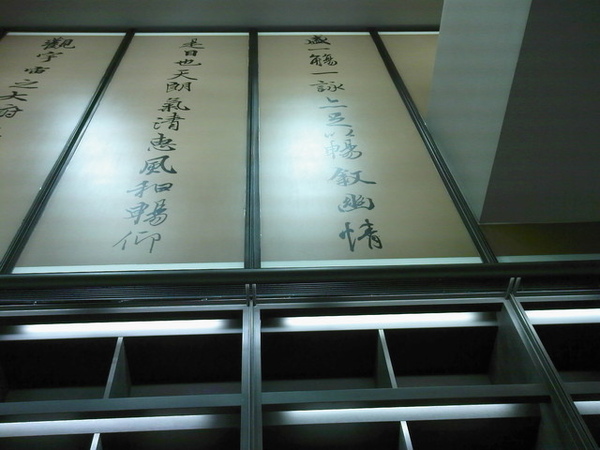 盛一觴一詠亦足以暢叙幽情
是日也天朗氣清惠風和暢仰
觀宇宙之大俯